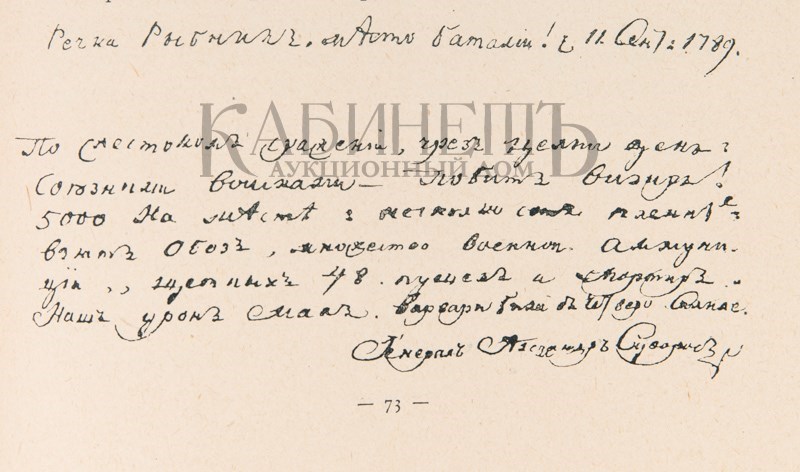 Речка Рыбникъ. мѣсто баталiи! 11. Сен: 1789.
КАБИНЕТЪ
АУКЦИОННЫЙ ДОМ
По жестокомъ сраженiи, чрезъ целый день:
союзными войсками — Побитъ визирь!
5000 На мѣстѣ: несколько пленны
взятъ Обозъ, множество военной. Аммуни-
цiи,, щетныхъ 48. пушекъ и мортиръ.
Нашъ уронъ малъ. Варвары были въ четверо сильнѣе.
Генералъ Александръ Суворовъ
— 73 —